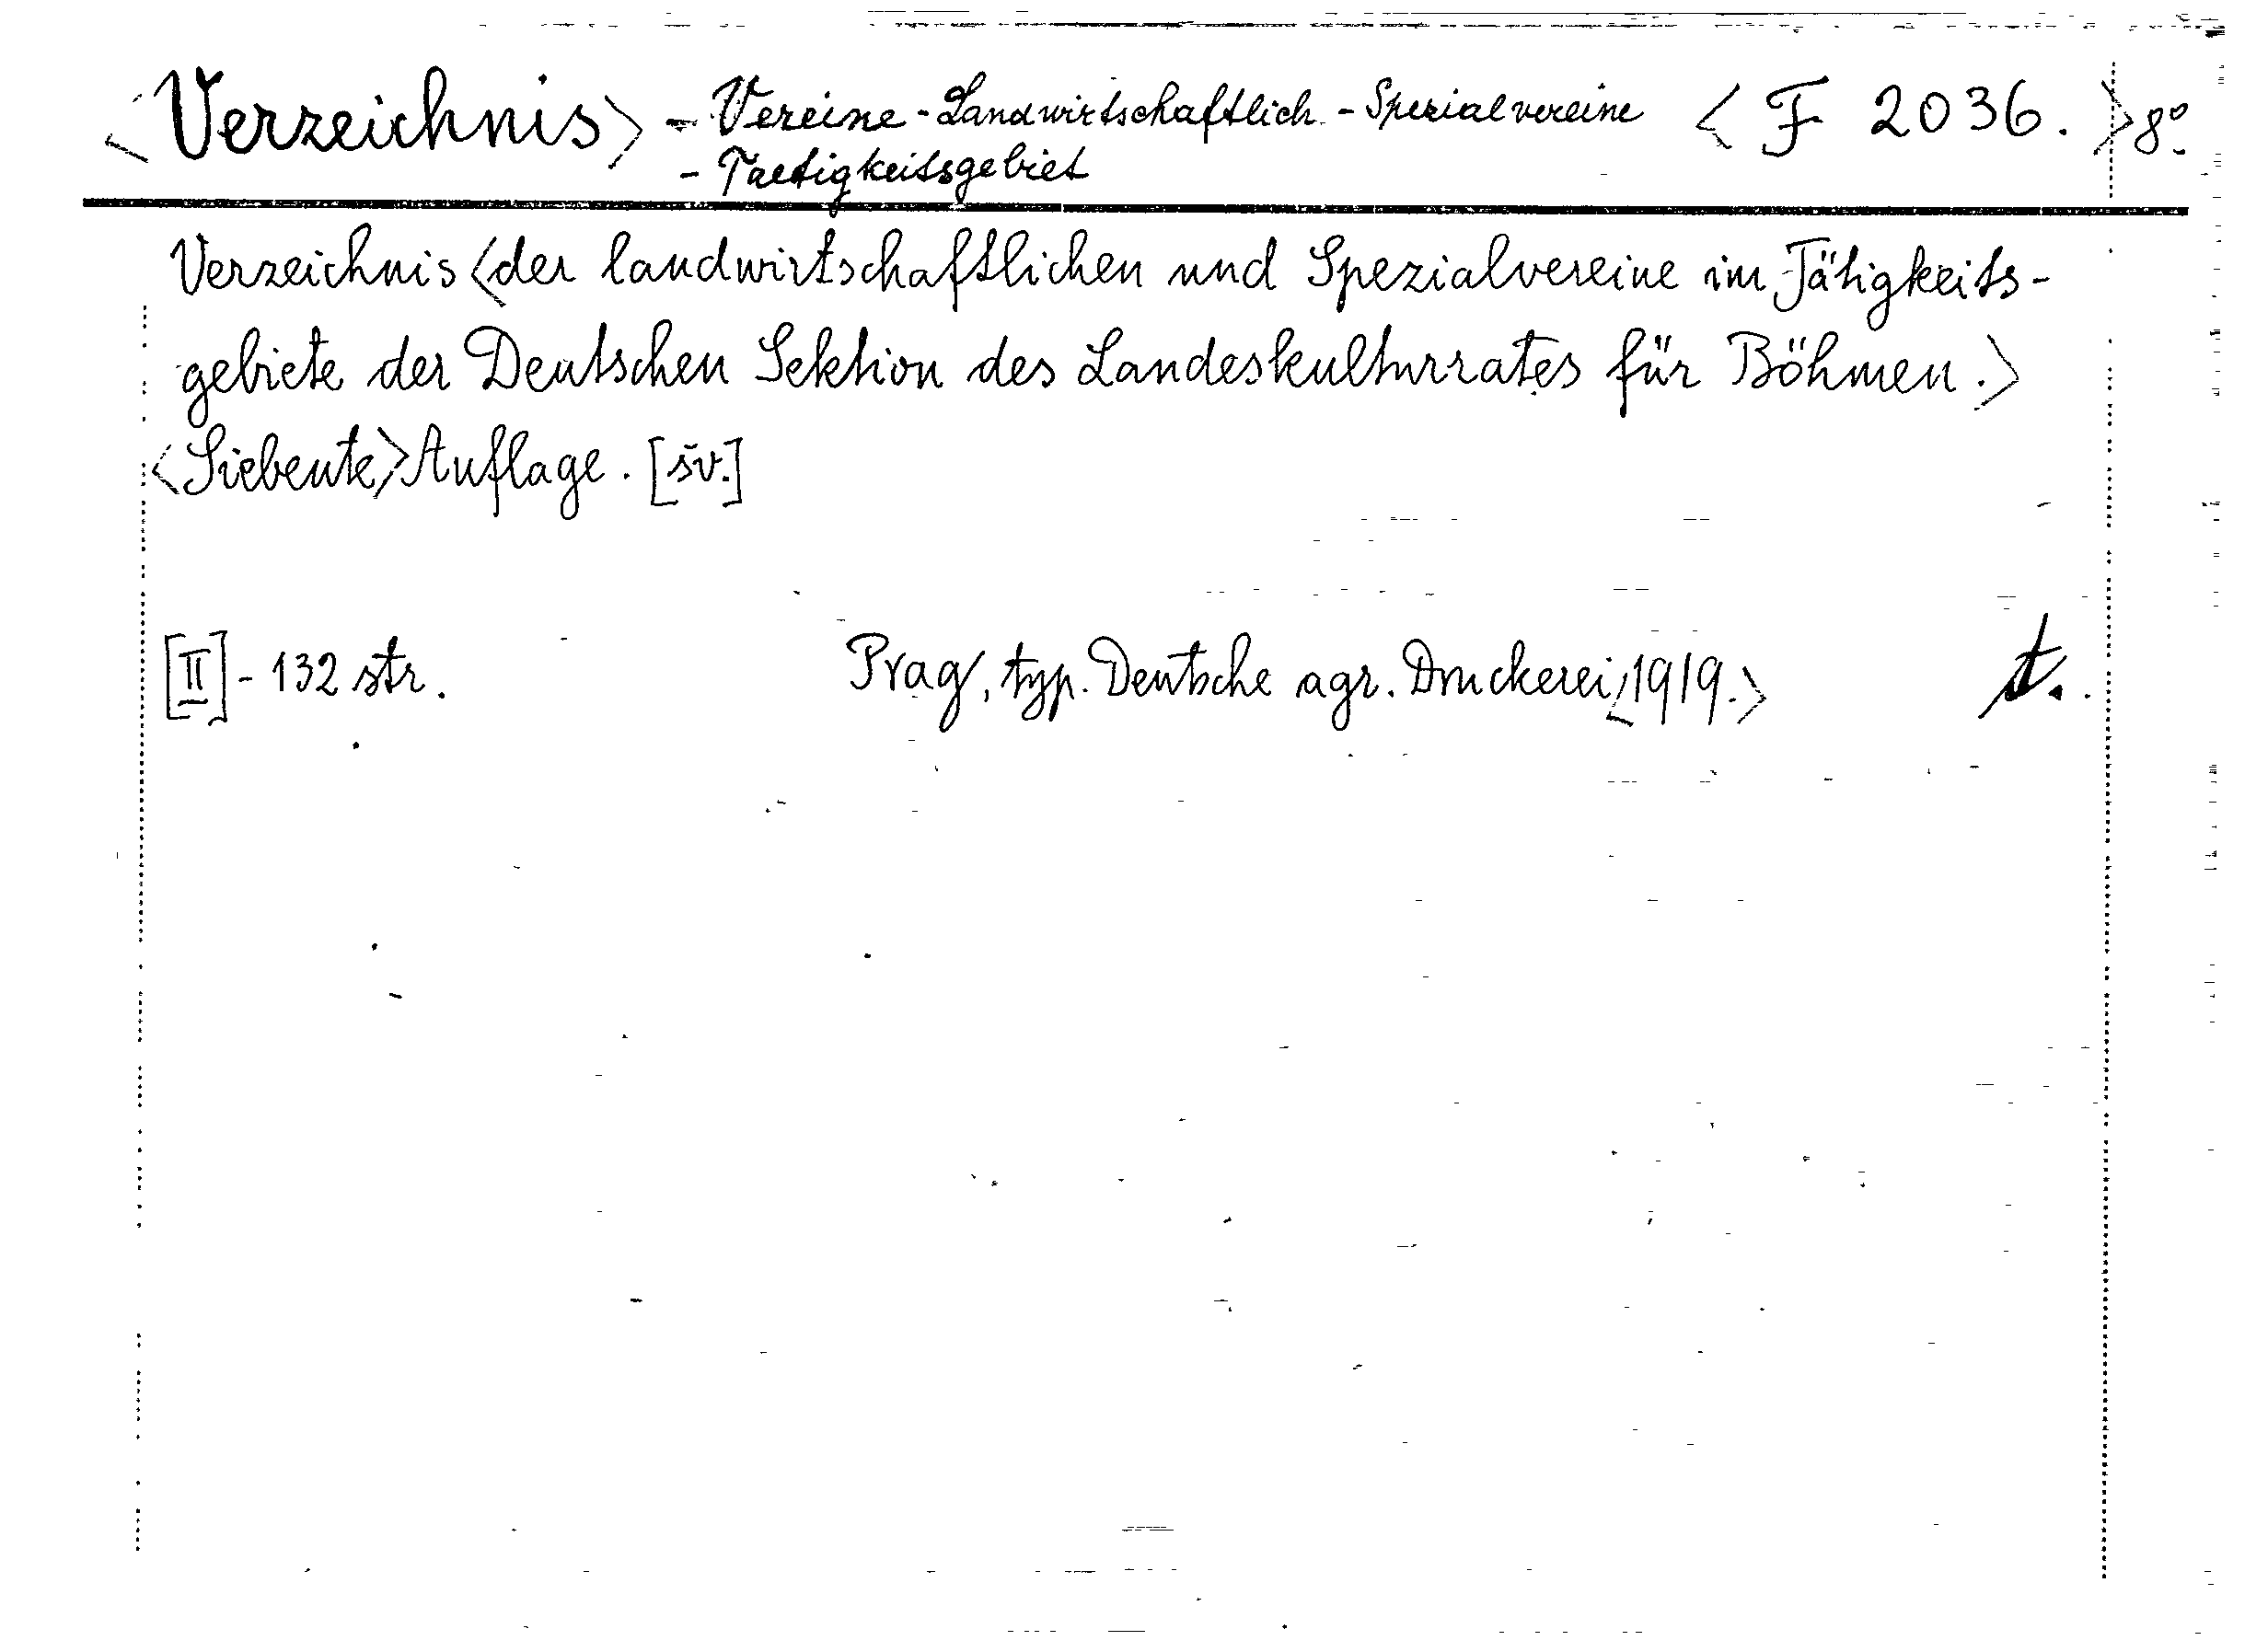 <Verzeichnis> - Vereine - Landwirtschaftlich - Spezialvereine <F 2036.> 8°.
- Taetigkeitsgebiet
Verzeichnis <der landwirtschaftlichen und Spezialvereine im Tätigkeits-
gebiete der Deutschen Sektion des Landeskulturrates für Böhmen.>
<Siebente> Auflage. [šv.]
[II] - 132 str. Prag, typ. Deutsche agr. Druckerei, <1919.> t.